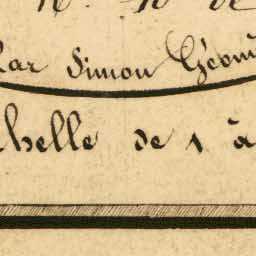 Par Simon Géom
chelle de 1 à